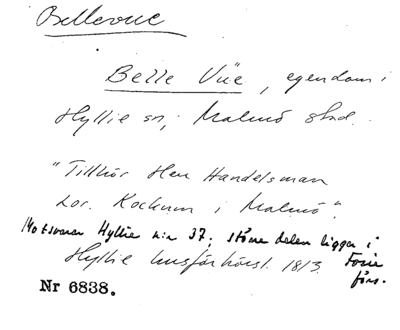 Bellevue
Belle Vüe, egendom i
Hyllie sn, Malmö stad.
"Tillhör Herr Handelsman
Lor. Kockum i Malmö".
Motsvarar Hyllie n:r 37; större delen ligger i
Hyllie husförhörsl. 1813. Fosie
förs.
Nr 6838.